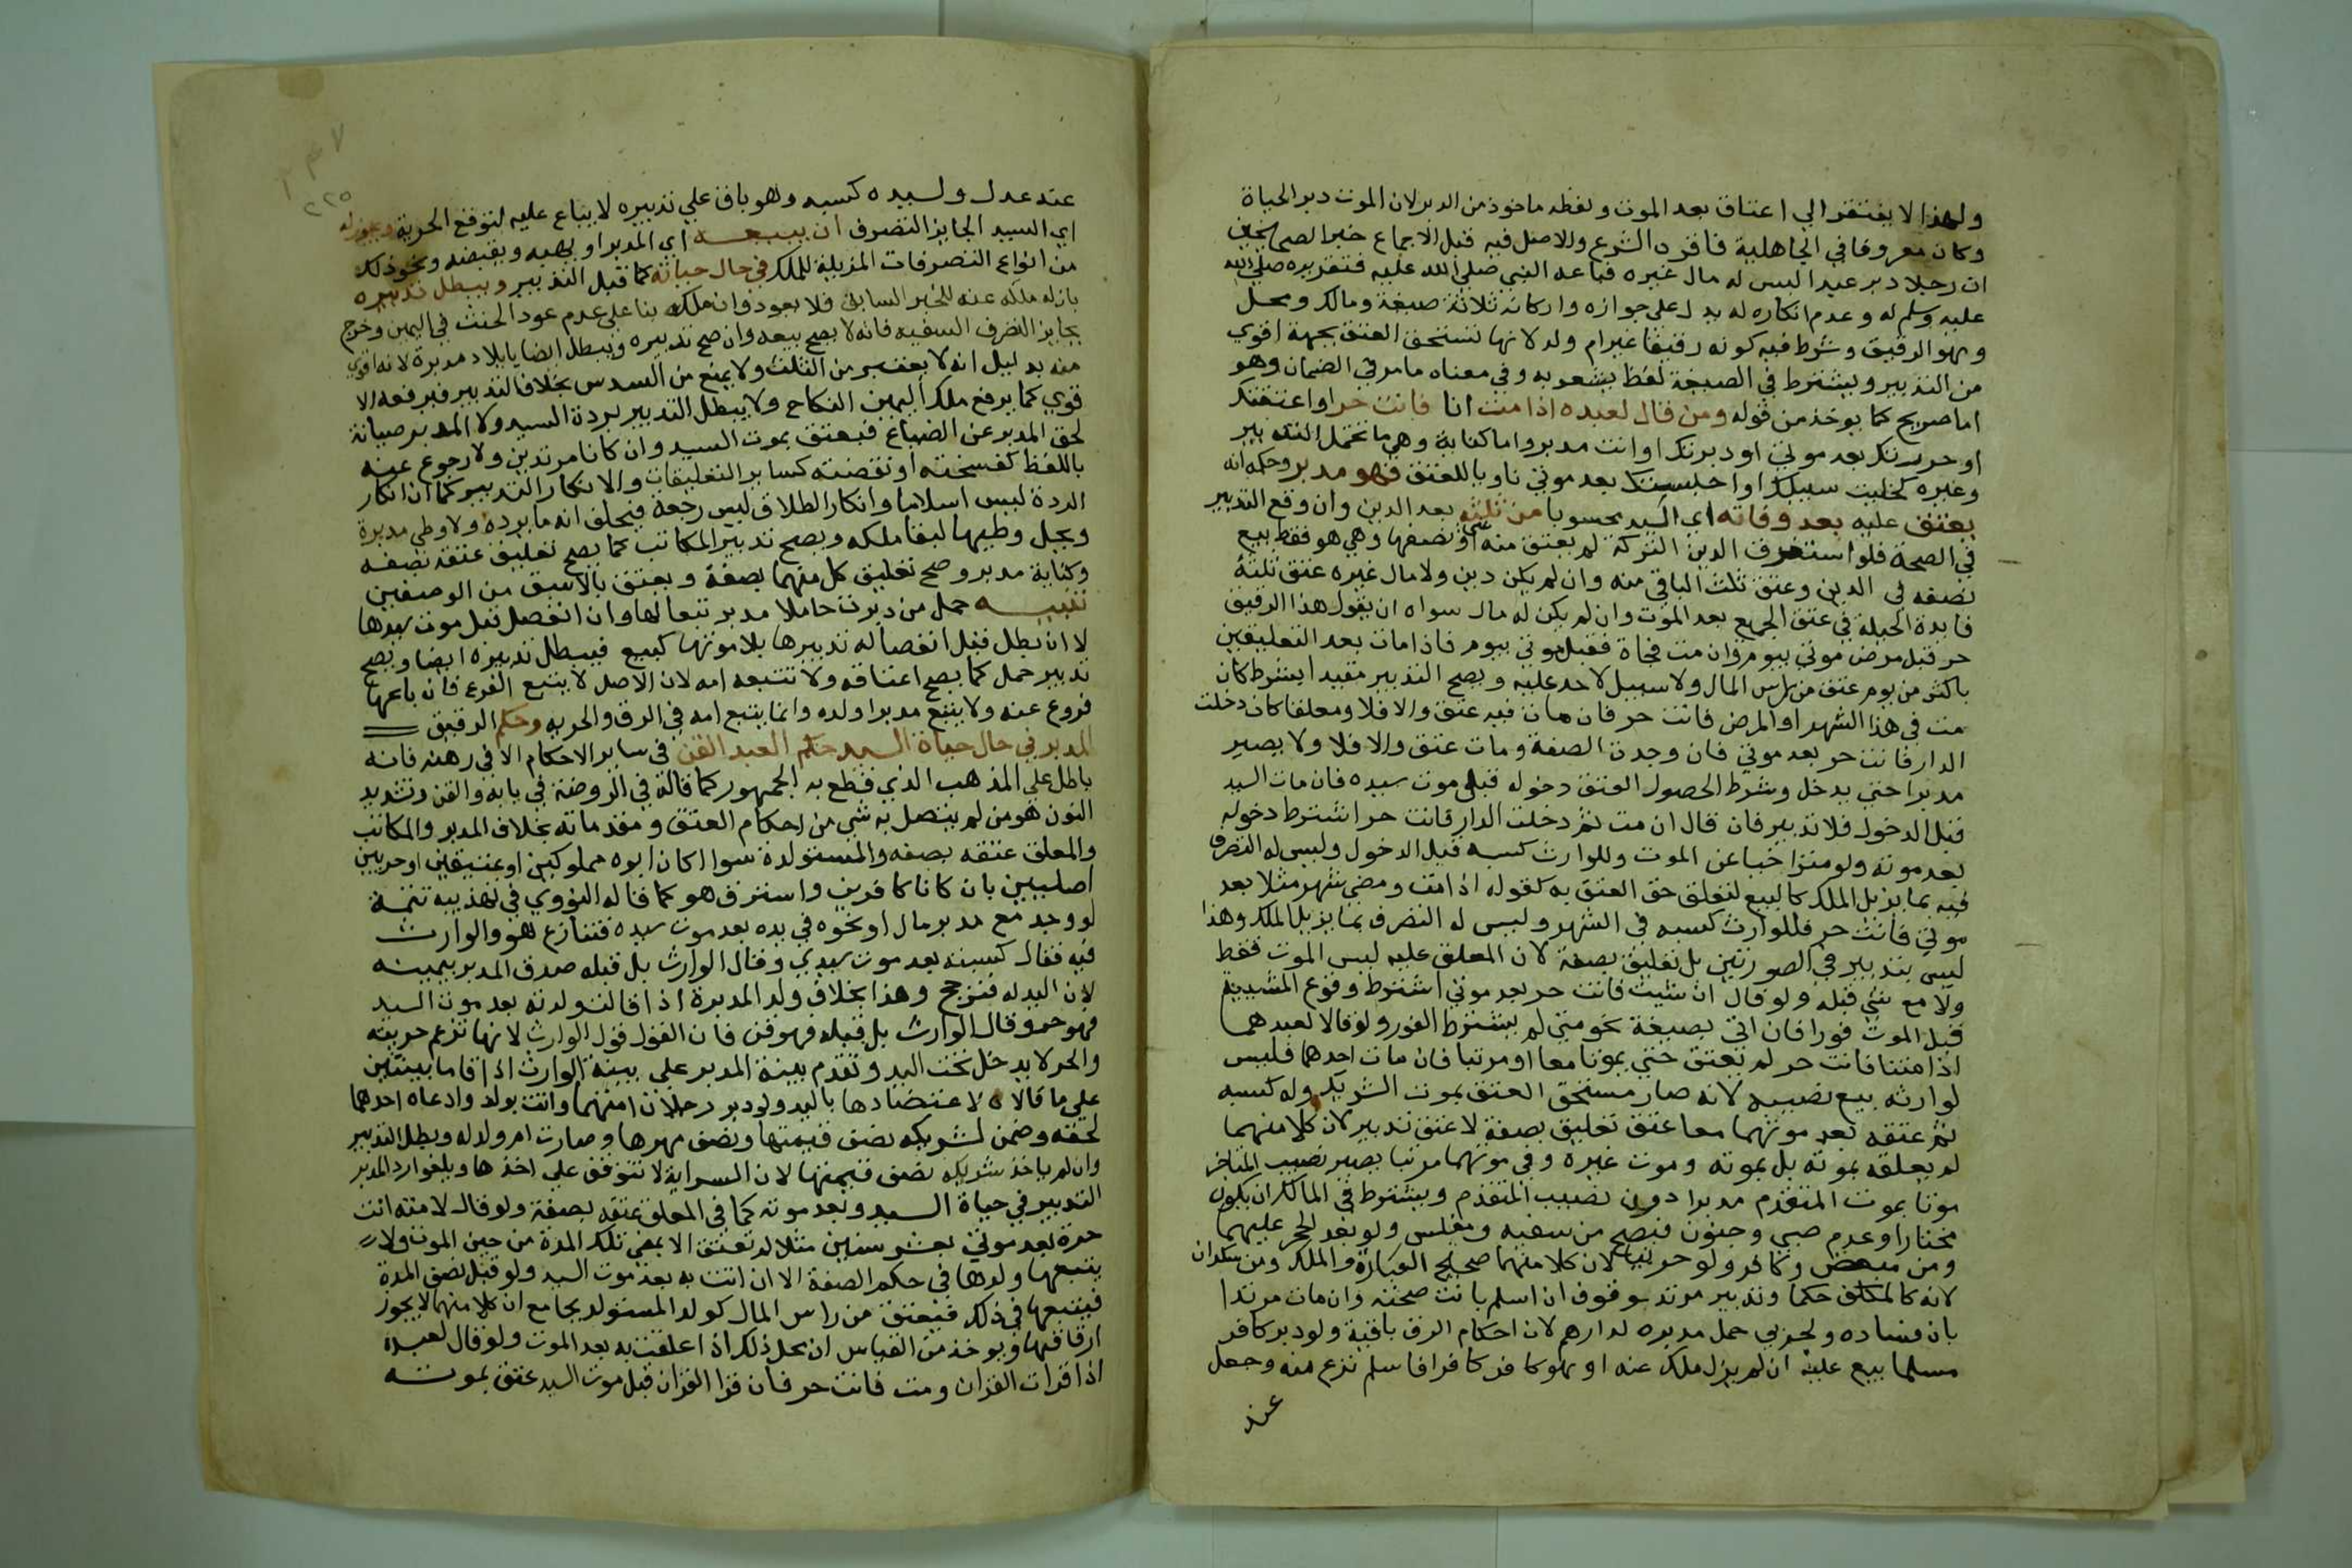 ولهذا لا يفتقر الي اعتاق بعد الموت ولفظه ماخوذ من الدبر لان الموت دبر الحياة
وكان معروفا في الجاهلية فاقره الشرع والاصل فيه قبل الاجماع خبر الصحيحين
ان رجلا دبر عبدا ليس له مال غيره فباعه النبي صلي الله عليه فتقريره صلي الله
عليه وسلم له وعدم انكاره له يدل علي جوازه واركانه ثلاثة صيغة ومالك ومحل
وهو الرقيق وشرط فيه كونه رقيقا غير ام ولد لانها تستحق العتق بجهة اقوي
من التدبير ويشترط في الصيغة لفظ يشعر به وفي معناه ما مر في الضمان وهو
اما صريح كما يوخذ من قوله ومن قال لعبده اذا مت انا فانت حر او اعتقتك
او حررتك بعد موتي او دبرتك او انت مدبر واما كناية وهي ما تحتمل التدبير
وغيره كخليت سبيلك او احبستك بعد موتي ناويا للعتق فهو مدبر وحكمه انه
يعتق عليه بعد وفاته اي السيد محسوبا من ثلثه بعد الدين وان وقع التدبير
في الصحة فلو استغرق الدين التركة لم يعتق منه شي او نصفها وهي هو فقط بيع
نصفه في الدين وعتق ثلث الباقي منه وان لم يكن دين ولا مال غيره عتق ثلثه
فايدة الحيلة في عتق الجميع بعد الموت وان لم يكن له مال سواه ان يقول هذا الرقيق
حر قبل مرض موتي بيوم وان مت فجاة فقبل موتي بيوم فاذا مات بعد التعليقين
باكثر من يوم عتق من راس المال ولا سبيل لاحد عليه ويصح التدبير مقيدا بشرط كان
مت في هذا الشهر او المرض فانت حر فان مات فيه عتق والا فلا ومعلقا كان دخلت
الدار فانت حر بعد موتي فان وجدت الصفة ومات عتق والا فلا ولا يصير
مدبرا حتي يدخل وشرط لحصول العتق دخوله قبل موت سيده فان مات السيد
قبل الدخول فلا تدبير فان قال ان مت ثم دخلت الدار فانت حر اشترط دخوله
بعد موته ولو متراخيا عن الموت وللوارث كسبه قبل الدخول وليس له التصرف
فيه بما يزيل الملك كالبيع لتعلق حق العتق به كقوله اذا مت ومضي شهر مثلا بعد
موتي فانت حر فللوارث كسبه في الشهر وليس له التصرف بما يزيل الملك وهذا
ليس بتدبير في الصورتين بل تعليق بصفة لان المعلق عليه ليس الموت فقط
ولا مع شي قبله ولو قال ان شيت فانت حر بعد موتي اشترط وقوع المشيية
قبل الموت فورا فان اتي بصيغة نحو متي لم يشترط الفور ولو قالا لعبدهما
اذا متنا فانت حر لم يعتق حتي يموتا معا او مرتبا فان مات احدهما فليس
لوارثه بيع نصيبه لانه صار مستحق العتق بموت الشريك وله كسبه
ثم عتقه بعد موتهما معا عتق تعليق بصفة لا عتق تدبير لان كلا منهما
لم يعلقه بموته بل بموته وموت غيره وفي موتهما مرتبا يصير نصيب المتاخر
موتا بموت المتقدم مدبرا دون نصيب المتقدم ويشترط في المالك ان يكون
مختارا وعدم صبي وجنون فيصح من سفيه ومفلس ولو بعد الحجر عليهما
ومن مبعض وكافر ولو حربيا لان كلا منهما صحيح العبارة والملك ومن سكران
لانه كالمكلف حكما وتدبير مرتد موقوف ان اسلم بانت صحته وان مات مرتدا
بان فساده ولحربي حمل مدبره لدارهم لان احكام الرق باقية ولو دبر كافر
مسلما بيع عليه ان لم يزل ملكه عنه او هو كافر كافرا فاسلم نزع منه وجعل
عند
عند عدل ولسيده كسبه وهو باق علي تدبيره لا يباع عليه لتوقع الحرية ويجوز له
اي السيد الجايز التصرف ان يبيعه اي المدبر او يهبه ويقبضه ونحو ذلك
من انواع التصرفات المزيلة للملك في حال حياته كما قبل التدبير ويبطل تدبيره
بازالة ملكه عنه للخبر السابق فلا يعود وان ملكه بنا علي عدم عود الحنث في اليمين وخرج
بجايز التصرف السفيه فانه لا يصح بيعه وان صح تدبيره ويبطل ايضا بايلاد مدبرة لانه اقوي
منه بدليل انه لا يعتبر من الثلث ولا يمنع من السدس بخلاف التدبير فيرفعه الا
قوي كما يرفع ملك اليمين النكاح ولا يبطل التدبير بردة السيد ولا المدبر صيانة
لحق المدبر عن الضياع فيعتق بموت السيد وان كانا مرتدين ولا رجوع عنه
باللفظ كفسخته او نقضته كساير التعليقات والا انكار التدبير كما ان انكار
الردة ليس اسلاما وانكار الطلاق ليس رجعة فيحلف انه ما بره ولا وطي مدبرة
ويحل وطيها لبقا ملكه ويصح تدبير المكاتب كما يصح تعليق عتقه بصفة
وكتابة مدبر وصح تعليق كل منهما بصفة ويعتق بالاسبق من الوصفين
تنبيه حمل من دبرت حاملا مدبر تبعا لها وان انفصل قبل موت سيدها
لا ان بطل قبل انفصاله تدبيرها بلا موتها كبيع فيبطل تدبيره ايضا ويصح
تدبير حمل كما يصح اعتاقه ولا تتبعه امه لان الاصل لا يتبع الفرع فان باعها
فروع عنه ولا يتبع مدبرا ولده وانما يتبع امه في الرق والحرية وحكم الرقيق
المدبر في حال حياة السيد حكم العبد القن في ساير الاحكام الا في رهنه فانه
باطل علي المذهب الذي قطع به الجمهور كما قاله في الروضة في بابه والقن بتشديد
النون هو من لم يتصل به شي من احكام العتق ومقدماته بخلاف المدبر والمكاتب
والمعلق عتقه بصفه والمستولدة سوا اكان ابوه مملوكين او عتيقين او حربين
اصليين بان كانا كافرين واسترق هو كما قاله النووي في تهذيبه تتمة
لو وجد مع مدبر مال او نحوه في يده بعد موت سيده فتنازع هو والوارث
فيه فقال كسبته بعد موت سيدي وقال الوارث بل قبله صدق المدبر بيمينه
لان اليد له فترجح وهذا بخلاف ولد المدبرة اذا قالت ولدته بعد موت السيد
فهو حر وقال الوارث بل قبله فهو قن فان القول قول الوارث لانها تزعم حريته
والحر لا يدخل تحت اليد وتقدم بينة المدبر علي بينة الوارث اذا اقاما بينتين
علي ما قالاه لاعتضادها باليد ولو دبر رجلان امتهما وانت بولد وادعاه احدهما
لحقه وضمن لشريكه نصف قيمتها ونصف مهرها وصارت ام ولد له وبطل التدبير
وان لم ياخذ شريكه نصف قيمتها لان السراية لا تتوقف علي اخذها ويلغوا رد المدبر
التدبير في حياة السيد وبعد موته كما في المعلق عتقه بصفة ولو قال لامته انت
حرة بعد موتي بعشر سنين مثلا لم تعتق الا بمضي تلك المدة من حين الموت ولا
يتبعها ولدها في حكم الصفة الا ان اتت به بعد موت السيد ولو قبل مضي المدة
فيتبعها في ذلك فيعتق من راس المال كولد المستولدة بجامع ان كلا منهما لا يجوز
ارقاقها ويوخذ من القياس ان محل ذلك اذا علقت به بعد الموت ولو قال لعبده
اذا قرات القران ومت فانت حر فان قرا القران قبل موت السيد عتق بموته